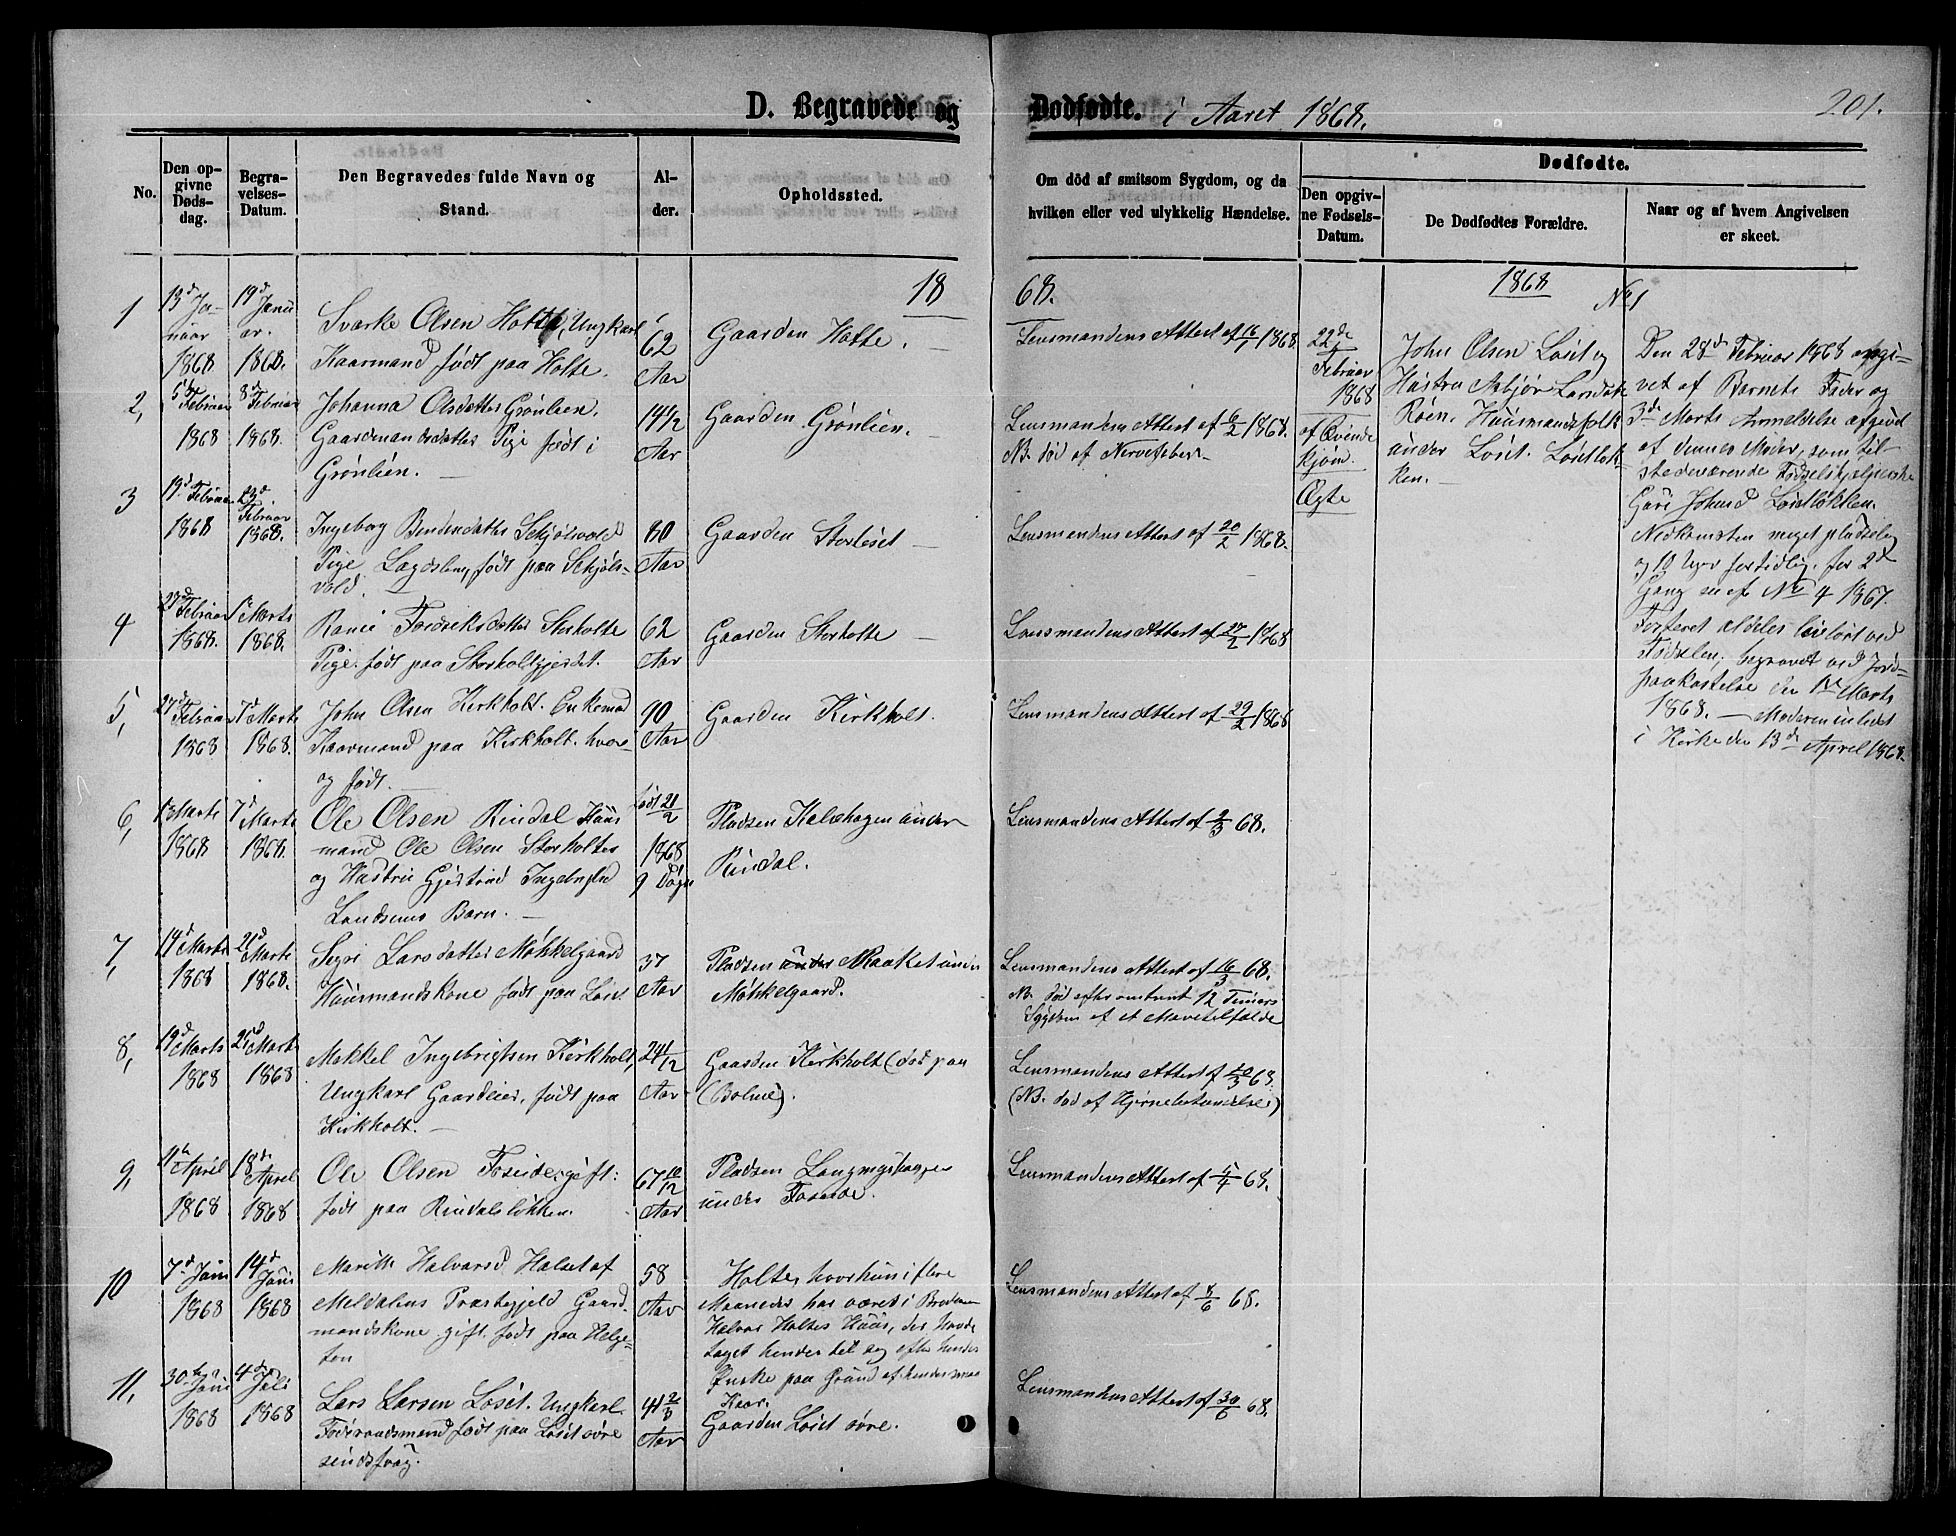 D. Begravede og Dødfødte. i Aaret 1868.
201.
No.
Den opgivne Dødsdag.
Begravelses-Datum.
Den Begravedes fulde Navn og Stand.
Alder.
Opholdssted.
Om död af smitsom Sygdom, og da hvilken eller ved ulykkelig Hændelse.
Dødfødte.
Den opgivne Fødsels-Datum.
De Dødfødtes Forældre.
Naar og af hvem Angivelsen er skeet.
1868.
1868
No 1
1
13d Januar 1868
19d Januar 1868.
Sværke Olsen Holte, Ungkarl
Kaarmand født paa Holte.
62 Aar
Gaarden Holte.
Lensmandens Attest af 16/1 1868.
2,
5te Februar 1868
8d Februar 1868.
Johanna Olsdatter Grønlien.
Gaardmandsdatter Pige født i
Grønlien.
14 1/2 Aar
Gaarden Grønlien.
Lensmandens Attest af 6/2 1868.
NB. død af Nervefeber
3
19d Februar 1868
23d Februar 1868.
Ingeborg Bendensdatter Sekjølsvold
Pige Lægdslem, født paa Sekjølsvold.
80 Aar
Gaarden Storløset
Lensmandens Attest af 20/2 1868.
4
Februar 1868.
1ste Marts 1868.
Ranei Fredriksdatter Storholte
Pige. født paa Storholtgjerdet.
62 Aar
Gaarden Storholte
Lensmandens Attest af 27/2 1868
5,
27d Februar 1868
7d Marts 1868.
John Olsen Kirkholt. Enkemand
Kaarmand paa Kirkholt. hvor
og født.
90 Aar
Gaarden Kirkholt.
Lensmandens Attest af 29/2 1868
6,
1ste Marts 1868
7d Marts 1868.
Ole Olsen Rindal Huusmand
Ole Olsen Storholtes
og Hustru Gjertrud Ingebrigtsd
Landsems Barn.
født 21/2 1868 9 Døgn
Pladsen Kalvhagen under
Rindal.
Lensmandens Attest af 2/3 68.
7,
14d Marts 1868
21d Marts 1868.
Sigri Larsdatter Møkkelgaard
Huusmandskone født paa Løset
37 Aar
Pladsen under Maaket under
Møkkelgaard.
Lensmandens Attest af 16/3 68.
NB. død efter omtrent 12 Timers
Sygdom af et Mavetilfælde
8,
19d Marts 1868
21d Marts 1868
Mikkel Ingebrigtsen Kirkholt,
Ungkarl Gaardeier, født paa
Kirkholt.
24 1/12 Aar
Gaarden Kirkholt (død paa
(Bolme).
Lensmandens Attest af 20/3 68.
(NB. død af Hjernebetændelse)
9,
April 1868
18de April 1868
Ole Olsen Foseide gift:
født paa Rindalsløkken.
67 10/12 Aar
Pladsen
under Foseide.
Lensmandens Attest af 68.
10
7d Juni 1868
14d Juni 1868
Marith Halvorsd Halset af
Meldalens Præstegjeld Gaardmandskone
gift, født paa Helgeton
58 Aar
Holte, hvor hun i flere
Maaneder har været i Broderen
Halvor Holtes Huus, der havde
taget hende til sig efter hendes
Ønske paa Grund af hendes
Kaar.
Lensmandens Attest af 8/6 68.
11,
30te Juni 1868
4de Juli 1868
Lars Larsen Løset. Ungkarl.
Føderaadsmand født paa Løset øvre
sindssvag.
41 2/3 Aar
Gaarden Løset øvre.
Lensmandens Attest af 30/6 68.
22de Februar 1868
af Qvindekjøn.
Ægte
John Olsen Løset og
Hustru Asbjør Larsdatter
Røen. Huusmandsfolk
under Løset. Løsetløkken.
Den 28d Februar 1868 opgivet
af Barnets Fader og
3de Marts Anmeldelse afgivet
af dennes Moder, som tilstedeværende
Fødselshjælperske
Guri Johnsd Løsetløkken.
Nedkomsten meget pludselig
og 10 Uger for tidlig, for 2d
Gang see af No 4 1867.
Fosteret aldeles livløst ved
Fødselen, begravet ved Jordpaakastelse
den 1ste Marts
1868. — Moderen inledet
i Kirke den 13de April 1868.